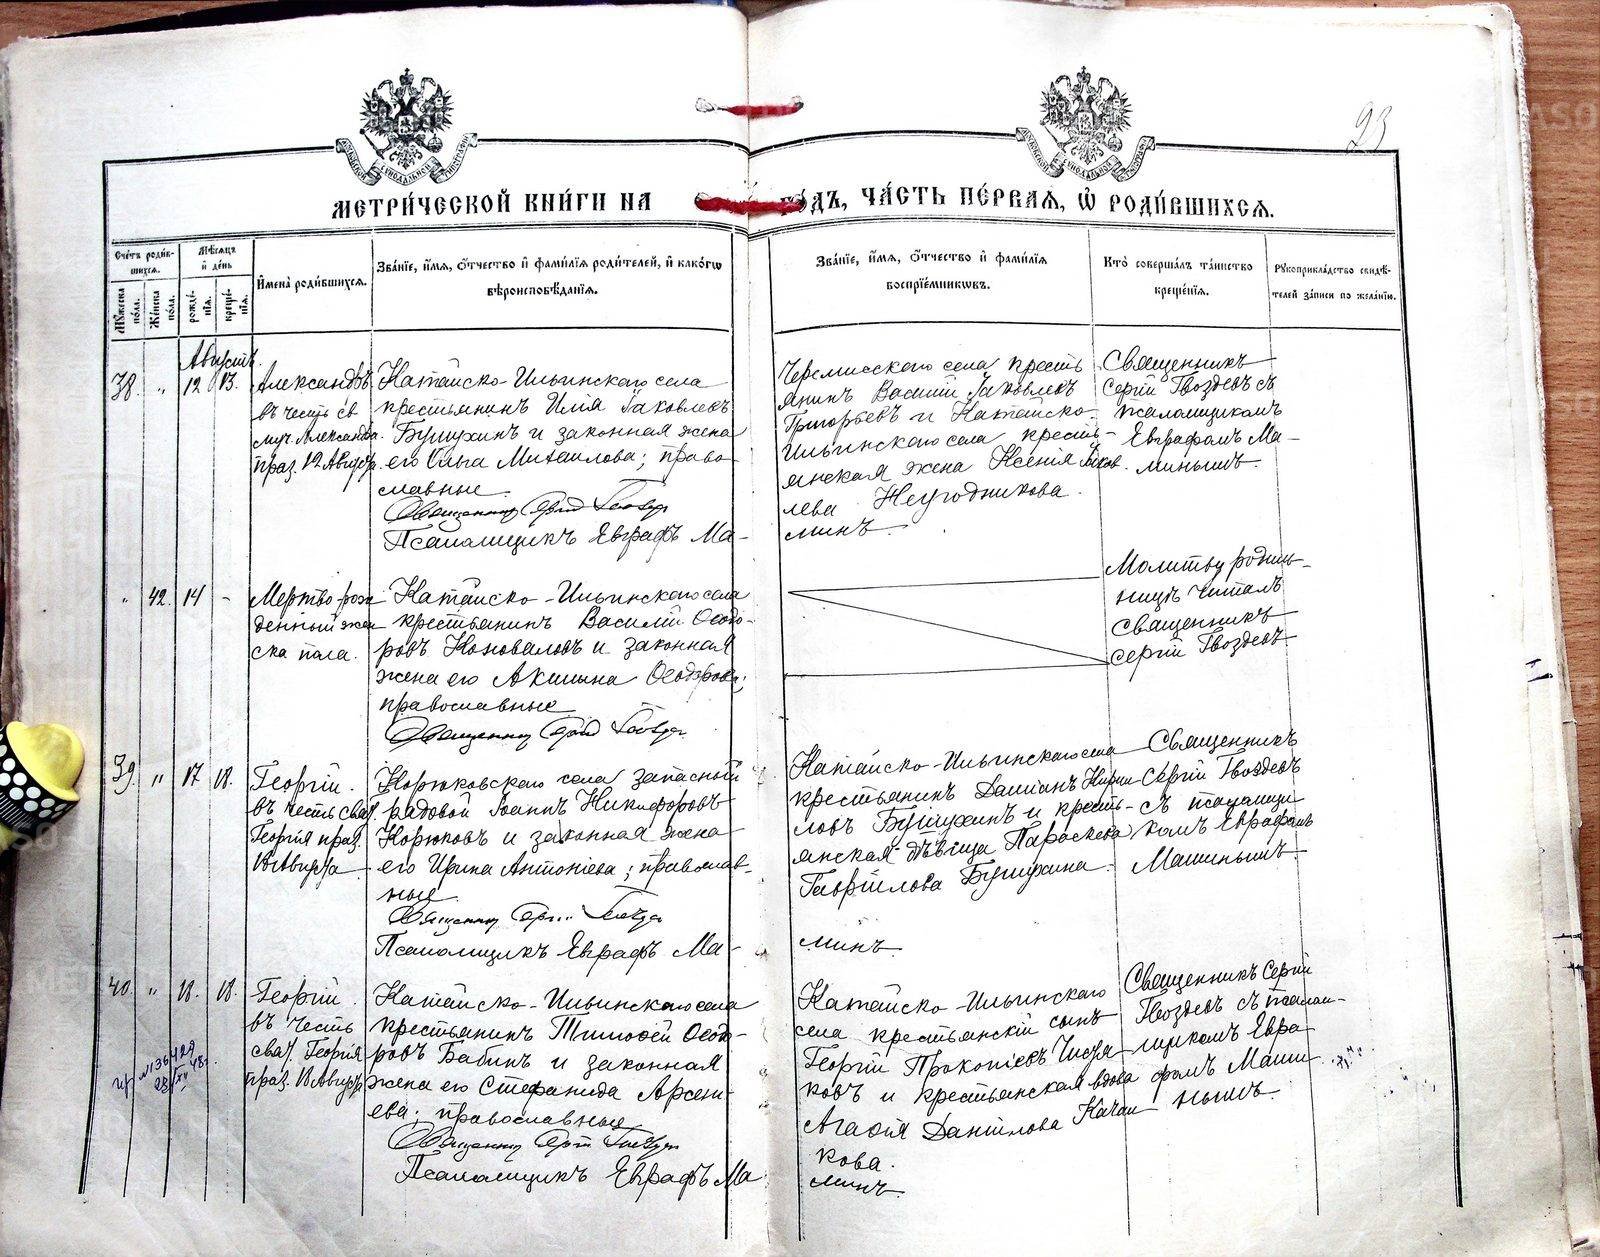 93
МЕТРИ́ЧЕСКОЙ КНИ́ГИ НА
ГО́ДЪ, ЧА́СТЬ ПЕ́РВАЯ, Ѡ РОДИ́ВШИХСЯ.
Сче́тъ роди́в-
шихся.
Мꙋ́жеска по́ла.
Же́нска по́ла.
Мѣ́сяцъ
и҆ де́нь
рожде́-
нїя.
креще́-
нїя.
И҆мена̀ роди́вшихся.
Зва́нїе, и҆́мя, ѻ҆́тчество и҆ фами́лїя роди́телей, и҆ како́гѡ
вѣроисповѣ́данїя.
Зва́нїе, и҆́мя, ѻ҆́тчество и҆ фами́лїя
воспрїе́мникѡвъ.
Кто̀ соверша́лъ та́инство
креще́нїя.
Рꙋкоприкла́дство свидѣ́-
телей за́писи по жела́нїю.
Августъ.
38 " 12 13.
Александръ
въ честь св
муч. Александра.
праз. 12 Августа.
Катайско-Ильинскаго села
крестьянинъ Илія Іаковлевъ
Бушухинъ и законная жена
его Ольга Михаилова; право-
славные.
Священникъ Сергій Гвоздевъ
Псаломщикъ Евграфъ Ма-
Черемисскаго села кресть
янинъ Василій Іаковлевъ
Григорьевъ и Катайско-
Ильинскаго села кресть-
янская жена Ксенія Іаков.
лева Неугодникова.
минъ.
Священникъ
Сергій Гвоздевъ съ
псаломщикомъ
Евграфомъ Ма-
минымъ.
" 42. 14 -
Мертво-рож
денный жен
ска пола.
Катайско-Ильинскаго села
крестьянинъ Василій Ѳеодо-
ровъ Коноваловъ и законная
жена его Акилина Ѳеодорова;
православные
Священникъ Сергій Гвоздевъ
Молитву родиль-
ницѣ читалъ
священникъ
Сергій Гвоздевъ
39. " 17 18.
Георгій.
въ честь свят.
Георгія праз.
18 Августа
Корюковскаго села запасный
рядовой Іоаннъ Никифоровъ
Корюковъ и законная жена
его Ирина Антоніева; православ-
ные
Священникъ Сергій Гвоздевъ
Псаломщикъ Евграфъ Ма-
Катайско-Ильинскаго села
крестьянинъ Даміанъ Кирил
ловъ Бушухинъ и кресть-
янская дѣвица Параскева
Гавріилова Бушухина.
минъ.
Священникъ
Сергій Гвоздевъ
съ псаломщи
комъ Евграфомъ
Маминымъ.
40. " 18. 18.
Георгій.
въ честь
свят. Георгія
праз. 18 Августа
№136429
28/XII 48г.
Катайско-Ильинскаго села
крестьянинъ Тимоѳей Ѳеодо-
ровъ Бабинъ и законная
жена его Стефанида Арсень-
ева; православные
Священникъ Сергій Гвоздевъ
Псаломщикъ Евграфъ Ма
Катайско-Ильинскаго
села крестьянскій сынъ
Георгій Прокопіевъ Чистя-
ковъ и крестьянская вдова
Агаѳія Даніилова Качал
кова.
минъ.
Священникъ Сергій
Гвоздевъ съ псалом-
щикомъ Евгра
фомъ Мами
нымъ.